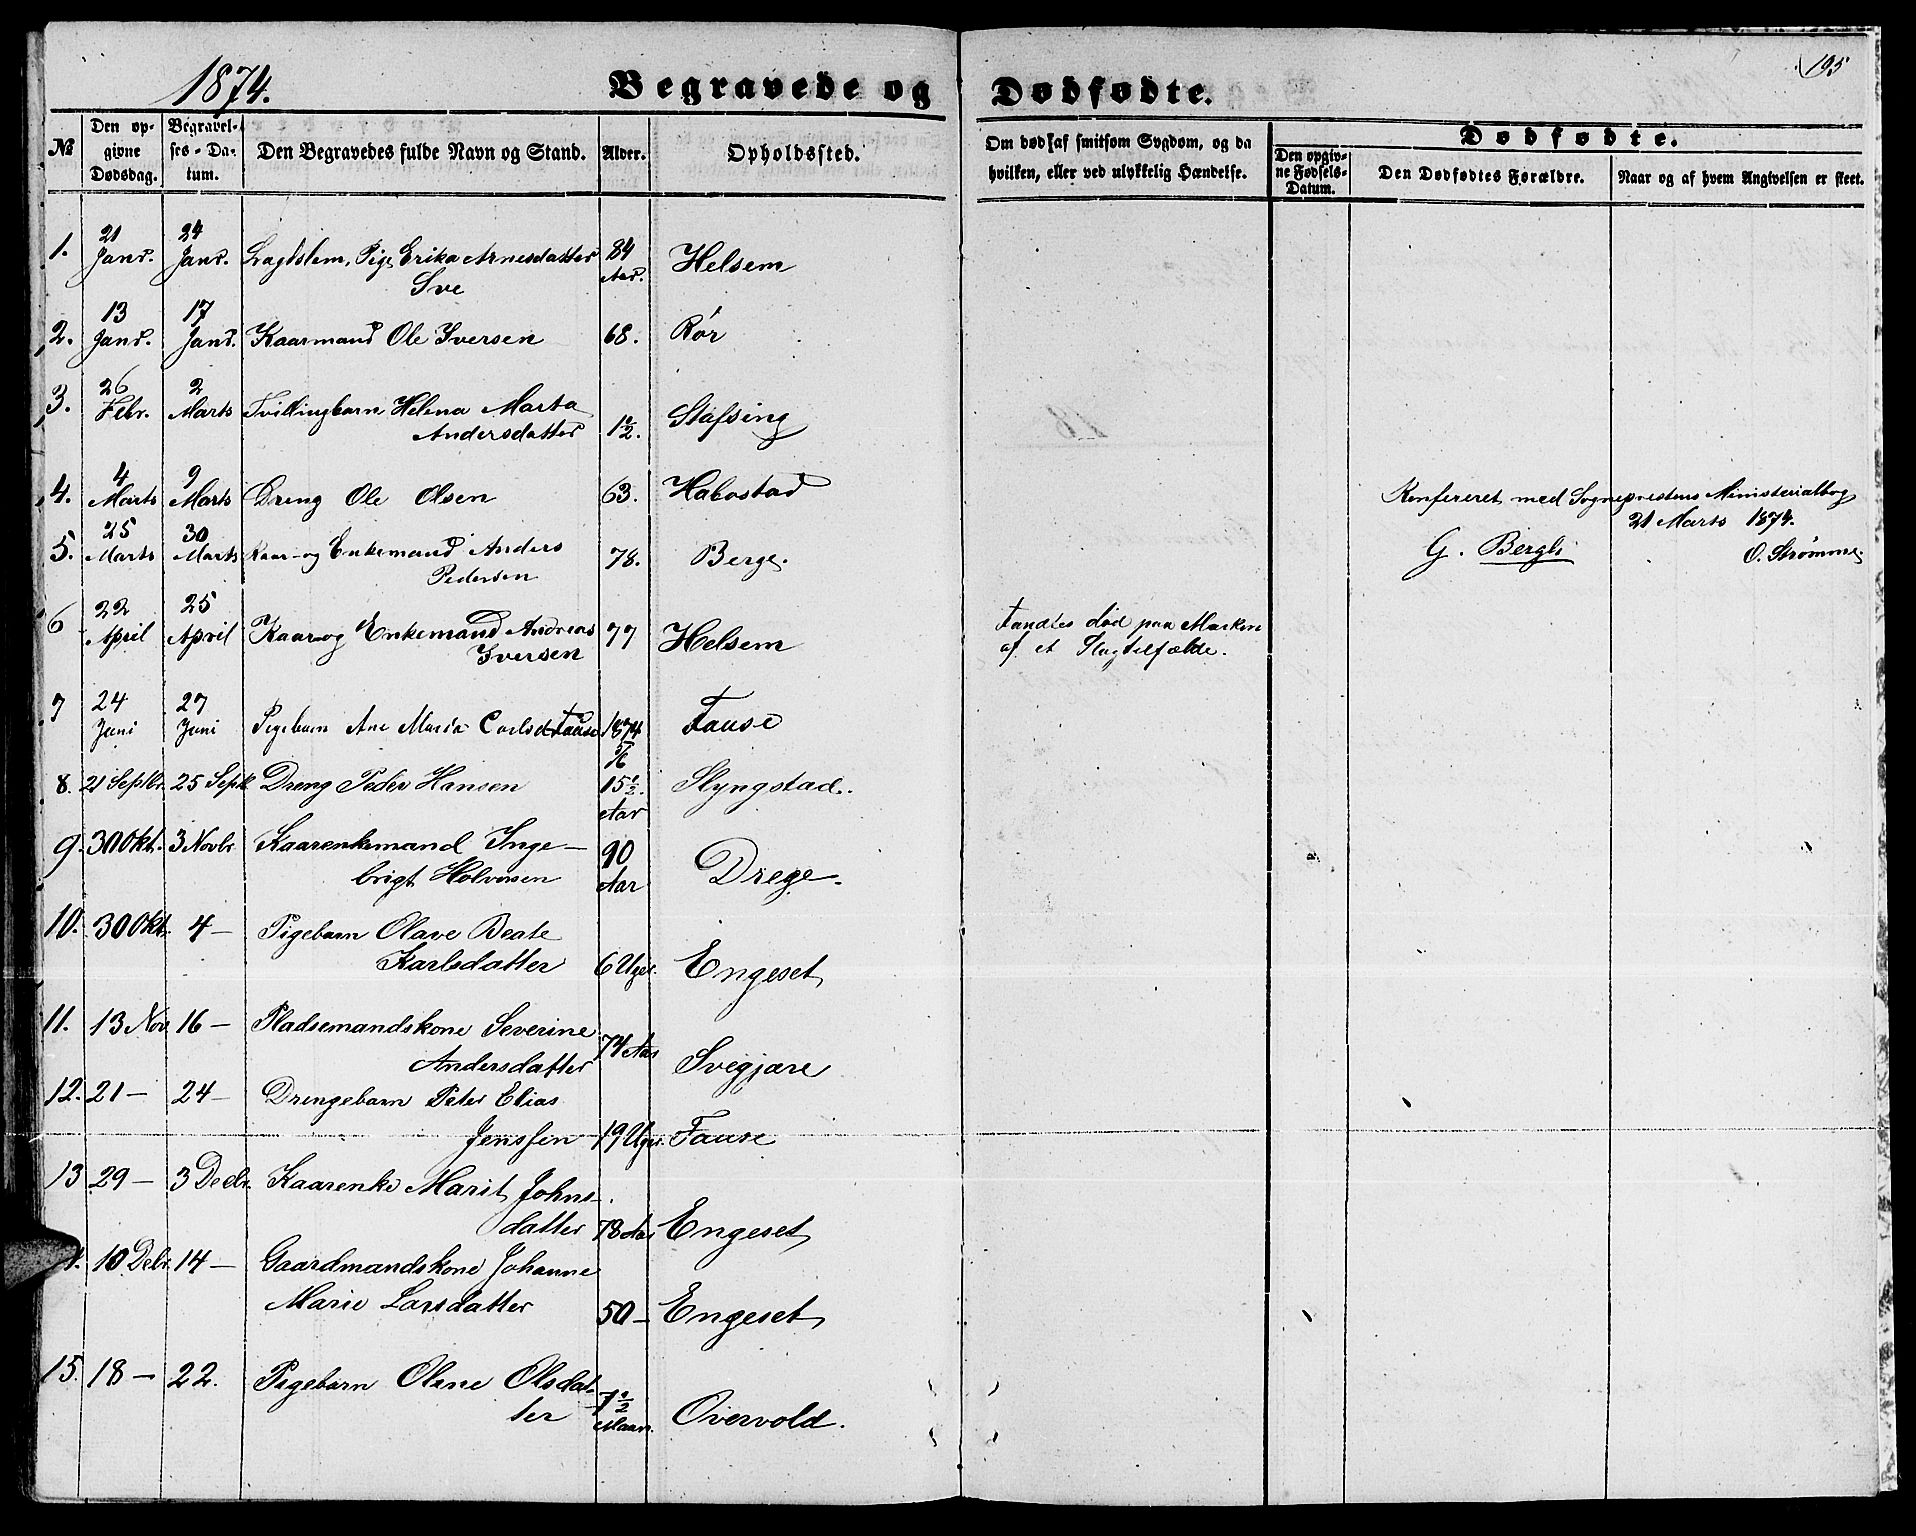 1874.
Begravede og Dødfødte.
195
№
Den opgivne Dødsdag.
Begravelses-Datum.
Den Begravedes fulde Navn og Stand.
Alder.
Opholdssted.
Om død af smitsom Sygdom, og da hvilken, eller ved ulykkelig Hændelse.
Dødfødte.
Den opgivne Fødsels-Datum.
Den Dødfødtes Forældre.
Naar og af hvem Angivelsen er skeet.
1. 21 Janr. 24 Janr. Lagdslem, Pige Erika Arnesdatter 84 Aar. Helsem
Sve
2. 13 Janr. 17 Janr. Kaarmand Ole Iversen 68. Rør
3. 26 Febr. 2 Marts Tvillingbarn Helena Marta 1 1/2. Stafsing
Andersdatter
4. 4 Marts 9 Marts Dreng Ole Olsen 63. Habostad
Konfereret med Sognepræstens Ministerialbog
21 Marts 1874.
5. 25 Marts 30 Marts Kaar- og Enkemand Anders 78. Berge.
Pedersen
G. Bergli O. Strømme.
6 22 April 25 April Kaar og Enkemand Andreas 77 Helsem
Iversen
Fandtes død paa Marken
af et Slagtilfælde.
7 24 Juni 27 Juni Pigebarn Ane Maria Carlsd Fause 1874 5/6 Fause
8. 21 Septbr. 25 Septb. Dreng Peder Hansen 15 1/2. Aar Slyngstad.
9. 30 Okt. 3 Novbr Kaarenkemand Inge-
brigt Halvorsen 90 Aar Drege.
10. 30 Okt. 4 – Pigebarn Olave Beate
Karlsdatter 6 Uger. Engeset
11. 13 Nov. 16 – Pladsemandskone Severine
Andersdatter 74 Aar Svegjære
12. 21 – 24 – Drengebarn Peter Elias
Jenssen 19 Uger. Fause
13 29 – 3 Decbr. Kaarenke Marit Johns-
datter 78 Aar Engeset
10 Debr. 14 – Gaardmandskone Johanne
Marie Larsdatter 50 – Engeset
15. 18 – 22. Pigebarn Oline Olsdat-
ter 7 1/2 Maan. Overvold.